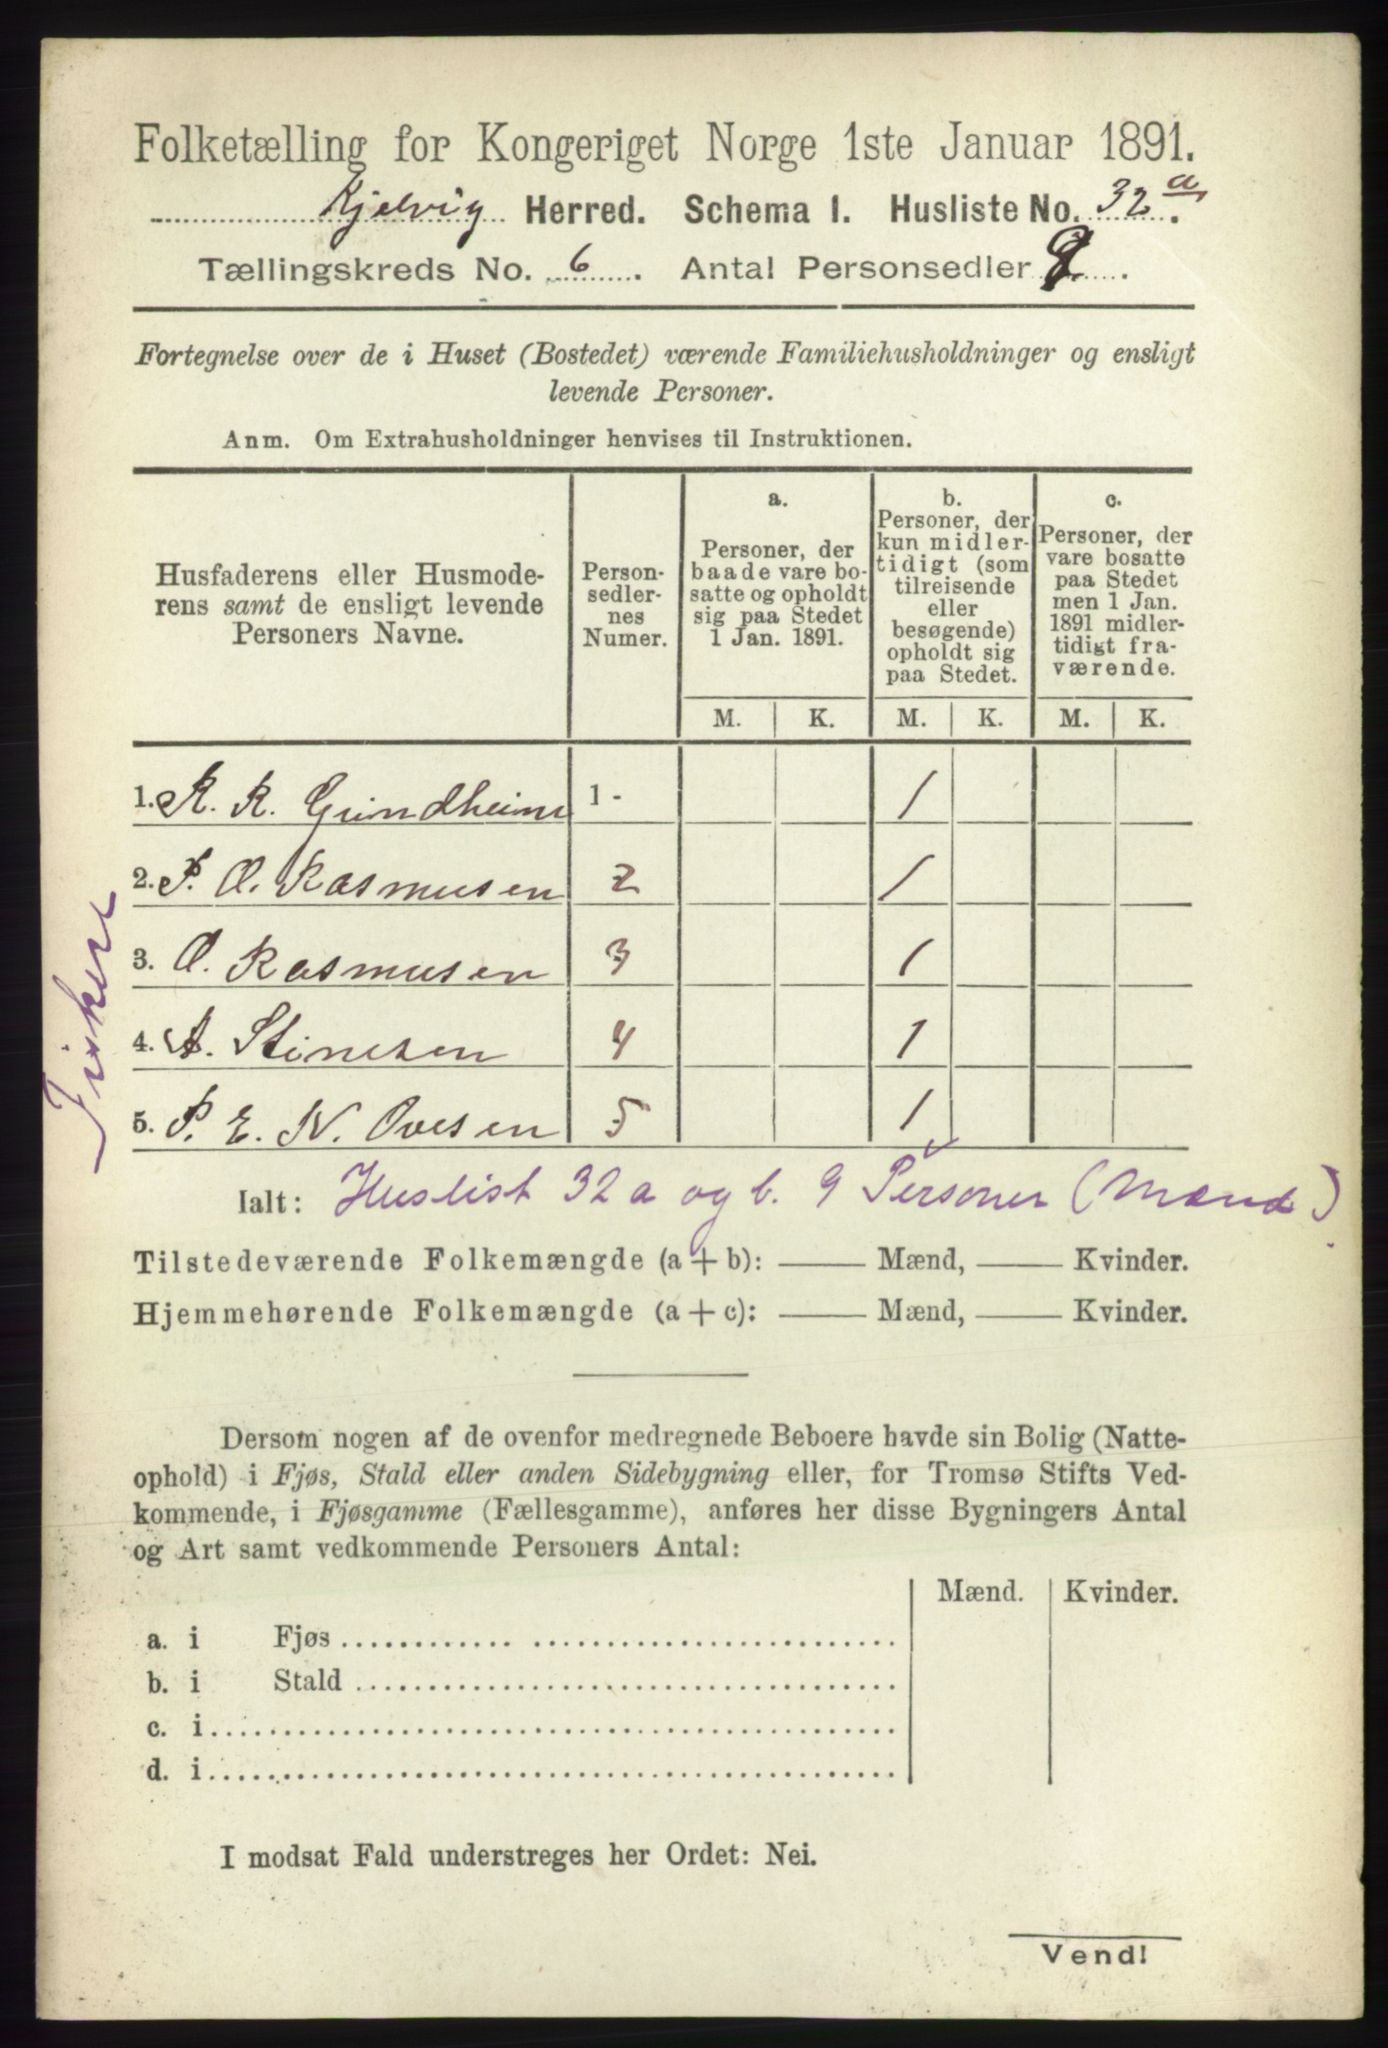 Folketælling for Kongeriget Norge 1ste Januar 1891.
Kjelvig Herred. Schema 1. Husliste No. 32 a.
Tællingskreds No. 6. Antal Personsedler 9.
Fortegnelse over de i Huset (Bostedet) værende Familiehusholdninger og ensligt
levende Personer.
Anm. Om Extrahusholdninger henvises til Instruktionen.
Husfaderens eller Husmode-
rens samt de ensligt levende
Personers Navne.
Person-
sedler-
nes
Numer.
a.
Personer, der
baade vare bo-
satte og opholdt
sig paa Stedet
1 Jan. 1891.
b.
Personer, der
kun midler-
tidigt (som
tilreisende
eller
besøgende)
opholdt sig
paa Stedet.
c.
Personer, der
vare bosatte
paa Stedet
men 1 Jan.
1891 midler-
tidigt fra-
værende.
M. K. M. K. M. K.
1. R. R. Grindheim 1 - 1
2. P. O. Rasmusen 2 1
3. O. Rasmusen 3 1
4. A. Stinesen 4 1
5. P. E. N. Ovesen 5 1
Fiskere
Ialt: Huslist 32 a og b. 9 Personer (Mænd)
Tilstedeværende Folkemængde (a + b): —— Mænd, —— Kvinder.
Hjemmehørende Folkemængde (a + c): —— Mænd, —— Kvinder.
Dersom nogen af de ovenfor medregnede Beboere havde sin Bolig (Natte-
ophold) i Fjøs, Stald eller anden Sidebygning eller, for Tromsø Stifts Ved-
kommende, i Fjøsgamme (Fællesgamme), anføres her disse Bygningers Antal
og Art samt vedkommende Personers Antal:
Mænd. Kvinder.
a. i Fjøs
b. i Stald
c. i
d. i
I modsat Fald understreges her Ordet: Nei.
Vend!